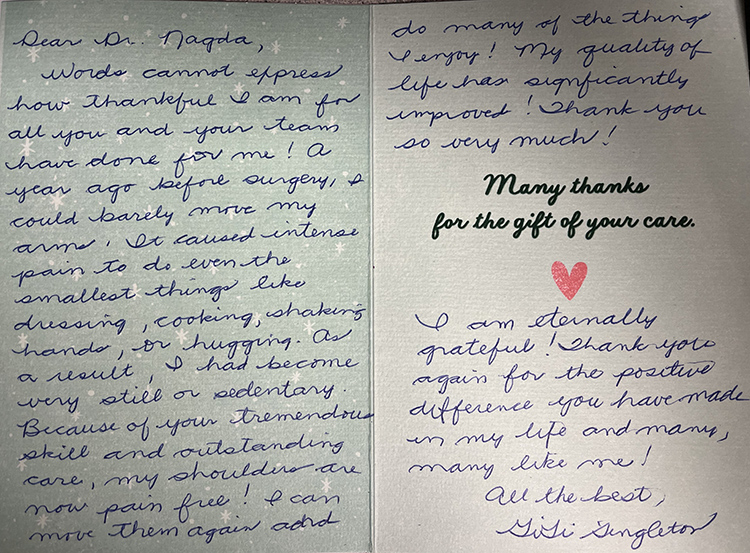 Dear Dr. Nagda,
Words cannot express
how thankful I am for
all you and your team
have done for me! A
year ago before surgery, I
could barely move my
arms. It caused intense
pain to do even the
smallest things like
dressing, cooking, shaking
hands, or hugging. As
a result, I had become
very still or sedentary.
Because of your tremendous
skill and outstanding
care, my shoulders are
now pain free! I can
move them again and
do many of the things
I enjoy! My quality of
life has signficantly
improved! Thank you
so very much!
Many thanks
for the gift of your care.
I am eternally
grateful! Thank you
again for the positive
difference you have made
in my life and many,
many like me!
All the best,
GiGi Singleton